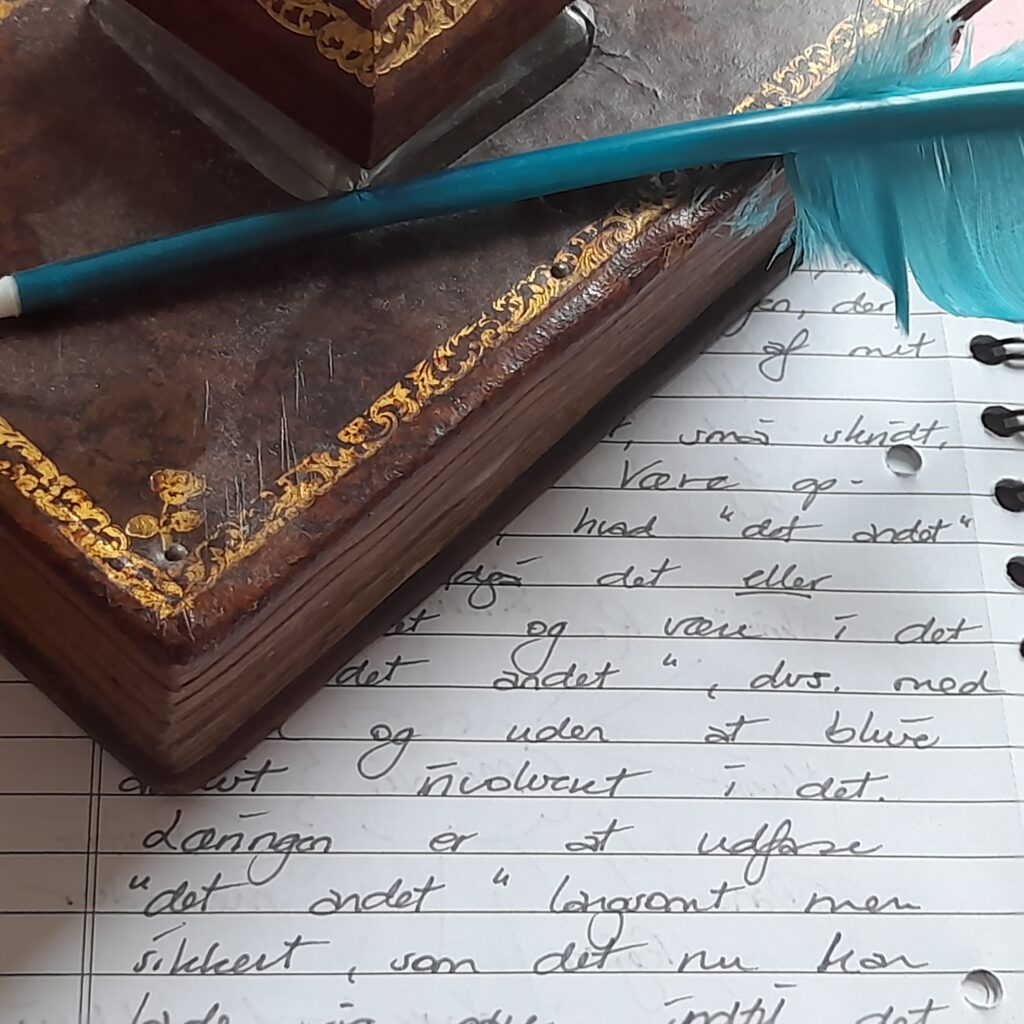 der
af mit
små skridt,
Være op-
hvad "det andet"
det eller
og være i det
det andet", dvs. med
og uden at blive
involveret i det.
Læringen er at udføre
"det andet" langsomt men
sikkert, som det nu kan
indtil det